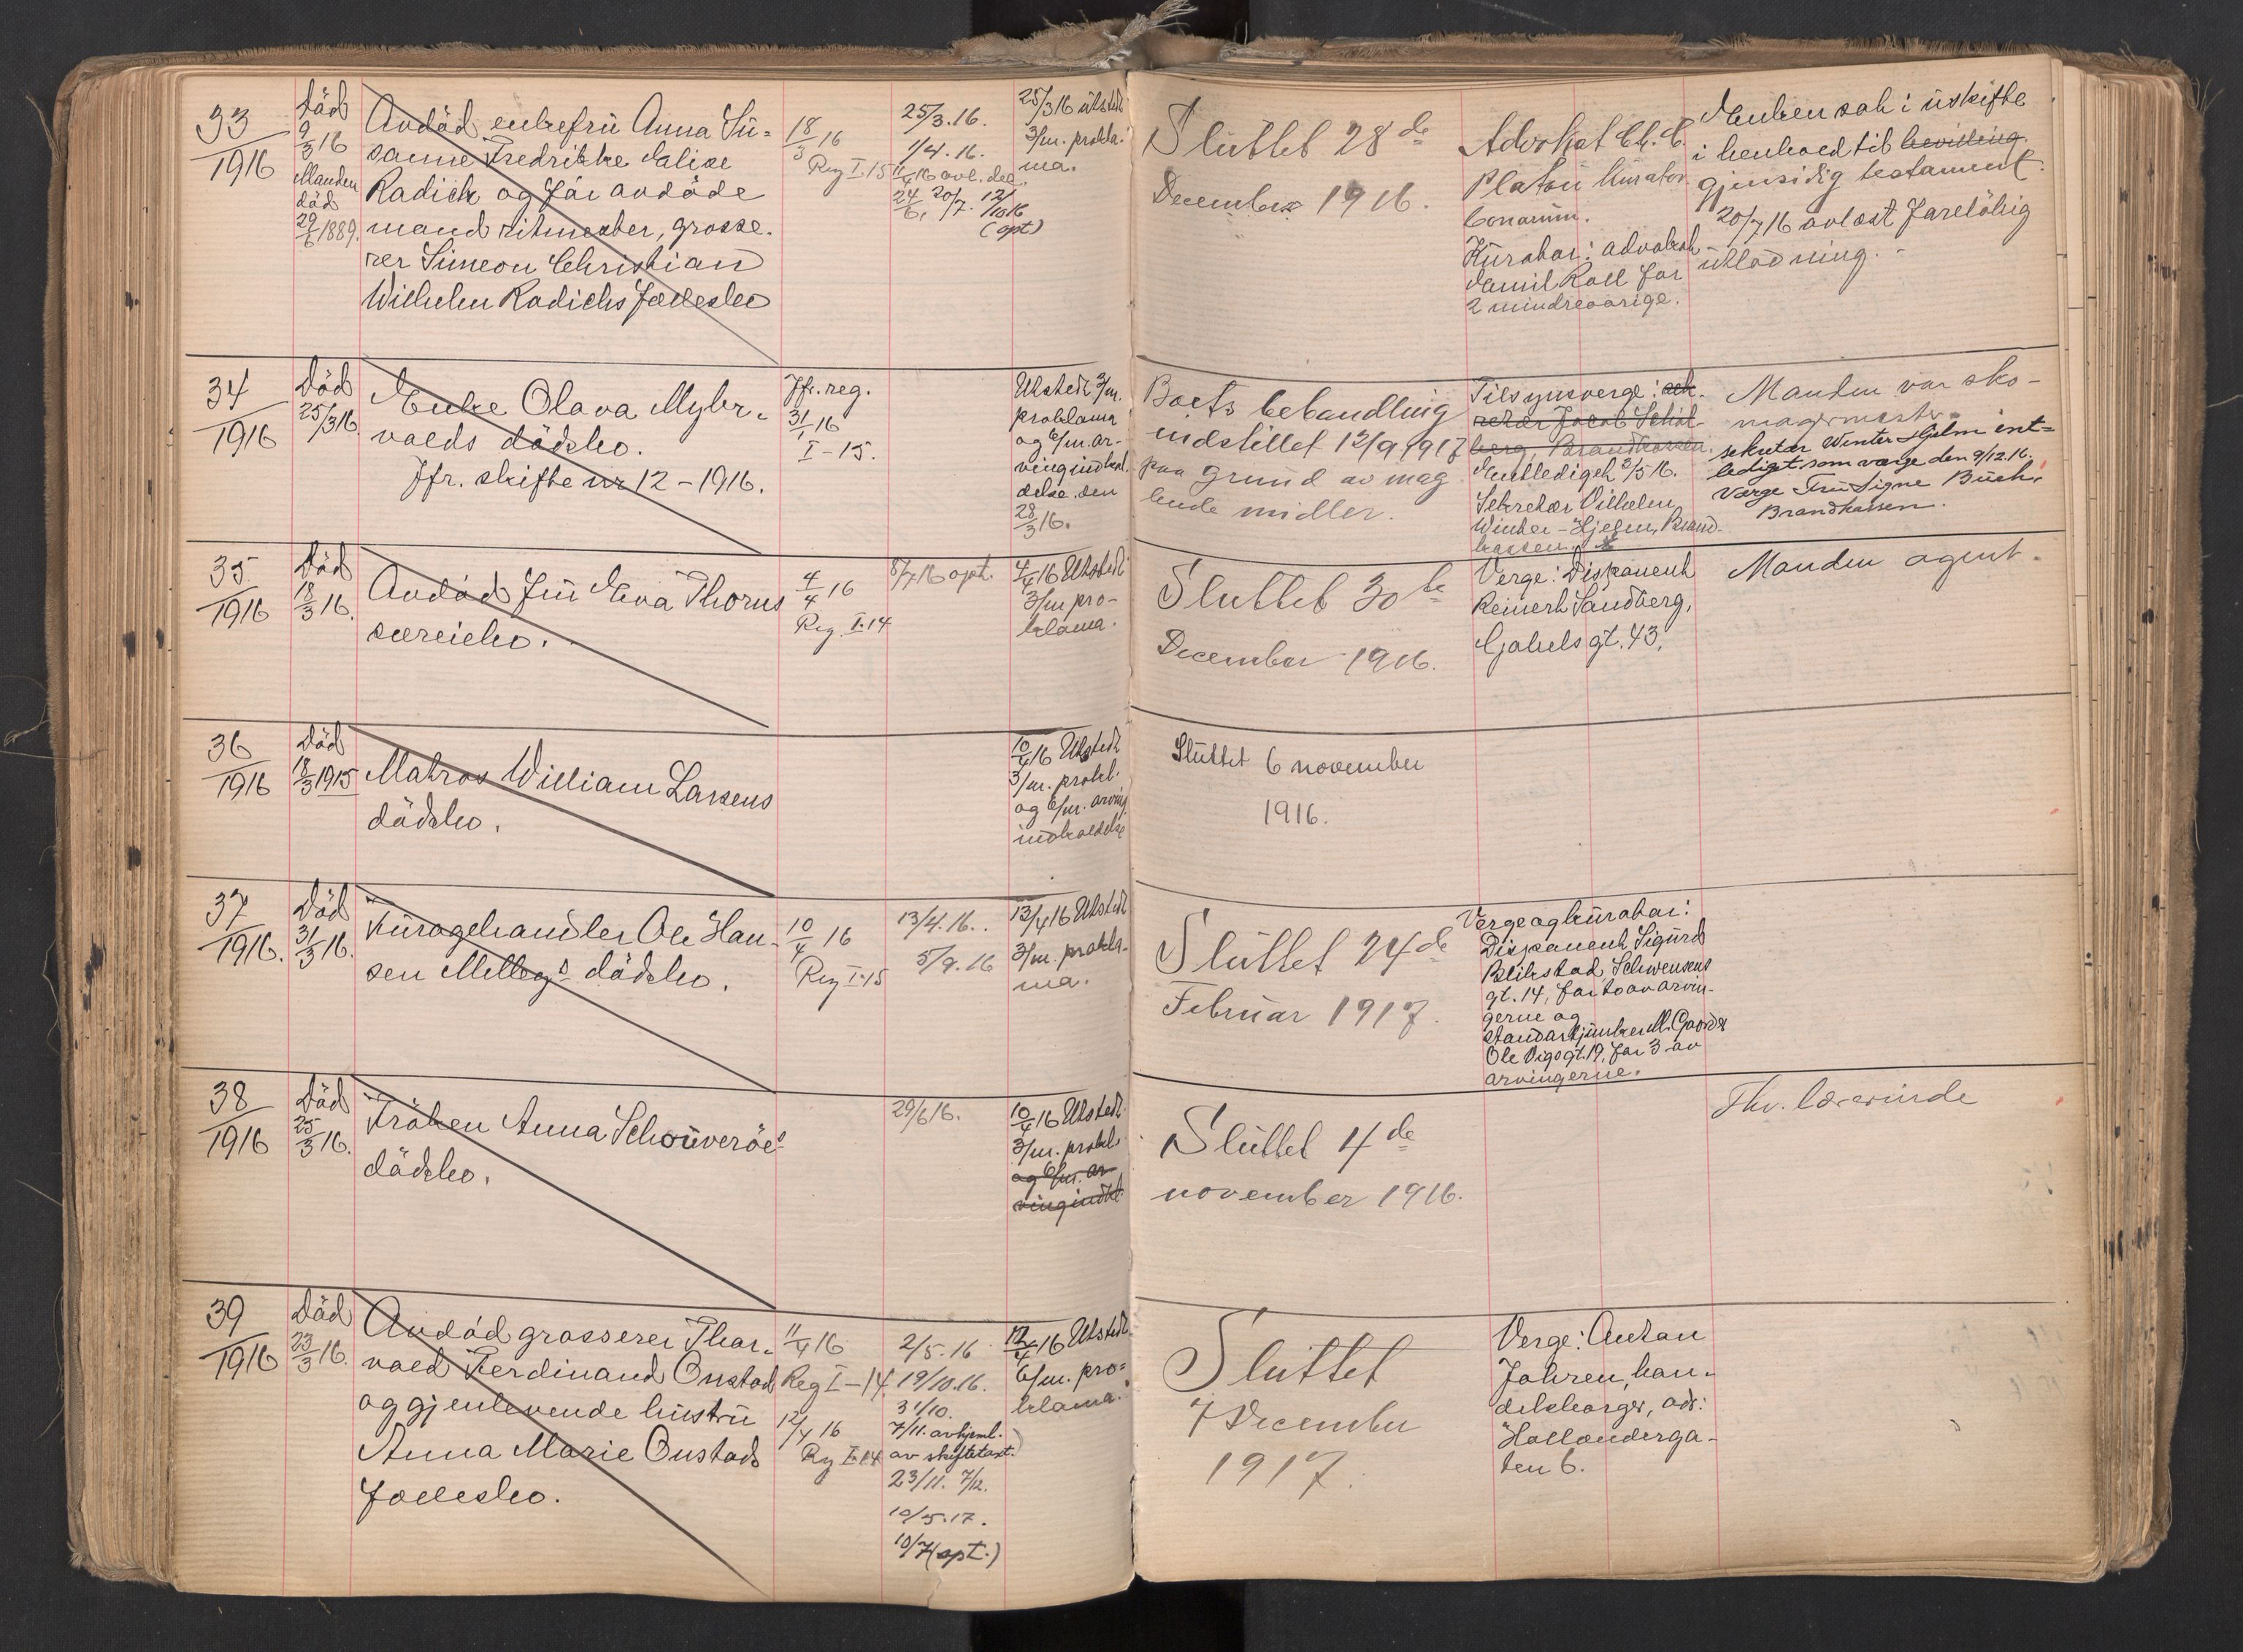 33
1916
Död
9/3 16
Manden
död
29/6 1889.
Avdöd enkefrü Anna Sü-
sanne Fredrikke Jalise
Radich og för avdöde
mand ritmester, grosse-
rer Simeon Christian
Wilhelm Radichs fællesbo
18/3 16
Reg I.15
25/3.16.
1/4.16.
20/7. 12/10 16
(opt)
25/3 16 utstedt
3/m. prokla-
ma.
Slüttet 28de
December 1916.
Advokat Ch. C.
Platou kürator
bonorum.
Kürator: advokat
Jamil Roll for
2 mindreaarige.
Enken sat i üskifte
i henhold til bevilling.
gjensidig testament.
20/7 16 avlæst foreløbig
ütlodning. -
34
1916
Död
25/3 16.
Enke Olava Myhr-
volds dödsbo.
Jfr. skifte nr 12 - 1916.
Jfr. reg.
31/1 16
I-15.
Utstedt 3/m.
proklama
og 6/m. ar-
vingindkal-
delse den
28/3 16.
Boets behandling
indstillet 13/9 1917
paa grund av mag
lende midler.
Tilsynsverge: sek-
retær Jacob Schöt-
berg, Brandkassen.
Entlediget 3/5 16.
Sekretær Vilhelm
Winter-Hjelm, Brand-
kassen.
Manden var sko-
magermester
sekretær Winter Hjelm ent-
lediget som værge den 9/12.16.
Værge Frü Signe Büch,
Brandkassen.
35
1916
Död
18/3 16.
Avdöd frü Eva Thorns
særeiebo.
4/4 16
Reg. I.14
8/7 16 opt.
4/4 16 Utstedt
3/m pro-
klama.
Slüttet 30te
December 1916.
Verge: Disponent
Reinert Sandberg,
Gabels gt. 43.
Manden agent.
36
1916
Död
18/3 1915
Matros William Larsens
dödsbo.
10/4 16 Utstedt
3/m. prokl.
og 6/m. arving
indkaldelse
Slüttet 6 november
1916.
37
1916.
Död
31/3 16.
Füragehandler Ole Han-
sen Mellegs dödsbo.
10/4 16
Reg I.15
13/4.16.
5/9.16
13/4 16 Utstedt
3/m. prokla-
ma.
Slüttet 24de
Februar 1917.
Verge og kürator:
Disponent Sigürd
Blikstad, Schwensens
gt. 14, for to av arvin-
gerne og
standartjunker M. Gaarder
Ole Vigs gt. 19, for 3 av
arvingerne.
38
1916
Död
25/3 16.
Fröken Anna Schouveröes
dödsbo.
29/6 16.
10/4 16 Utstedt
3/m. prokl.
og 6/m. ar-
vingindkl.
Slüttet 4de
november 1916.
Fhv. lærerinde
39
1916
Död
23/3 16.
Avdöd grosserer Thor-
vald Ferdinand Onstad
og gjenlevende hustrü
Anna Marie Onstads
fællesbo.
11/4 16
Reg I-14
12/4 16
Reg I-14
2/5.16
19/10.16.
31/10.
7/11. avhjml.
av skiftetaxt.
23/11. 7/12.
10/5.17.
10/7 (opt.)
12/4 16 Utstedt
6/m. pro-
klama.
Slüttet
7 December
1917.
Verge: Anton
Johren, han-
delsborger, adr:
Hollenderga-
ten 6.